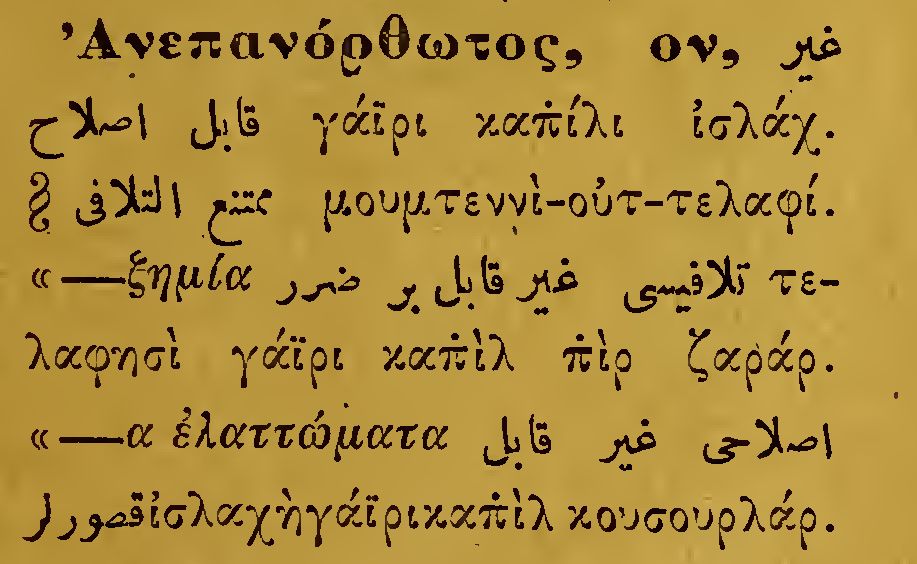 Ἀνεπανόρθωτος, ον, غیر
قابل اصلاح γάϊρι καπ̇ίλι ἰσλάχ.
§ ممتنع التلافی μουμτεννὶ-οὐτ-τελαφί.
«—ξημία تلافیسی غیر قابل بر ضرر τε-
λαφησὶ γάϊρι καπ̇ὶλ π̇ὶρ ζαράρ.
«—α ἐλαττώματα اصلاحی غیر قابل
قصورلر ἰσλαχὴ γάϊρι καπ̇ὶλ κουσουρλάρ.